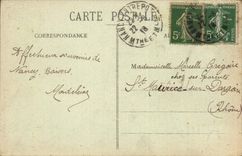 CARTE POSTALE
CORRESPONDANCE
Affectueux souvenirs de
Nancy. Baisers.
Mademoiselle Marcelle Gregoire
chez ses parents
St Maurice-sur-Dargoire
(Rhône)